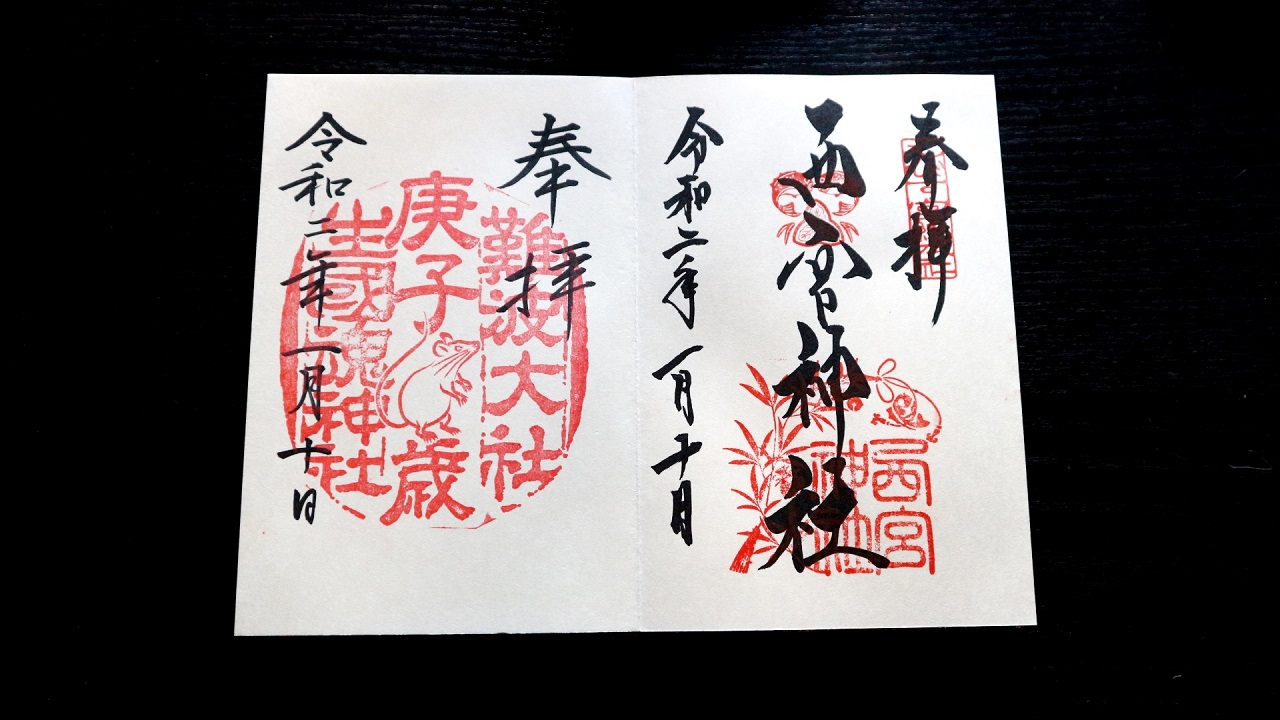 奉拝
西宮神社
西宮
神社
令和二年一月十日
奉拝
難波大社
庚子歳
生國魂神社
令和二年一月十日